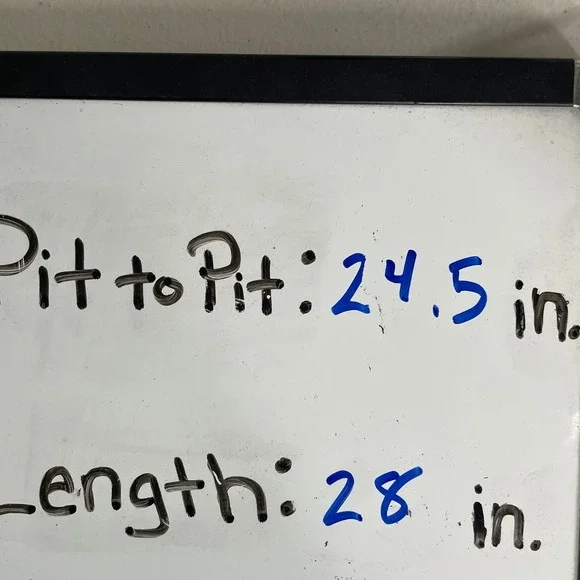 Pit to Pit: 24.5 in.
Length: 28 in.